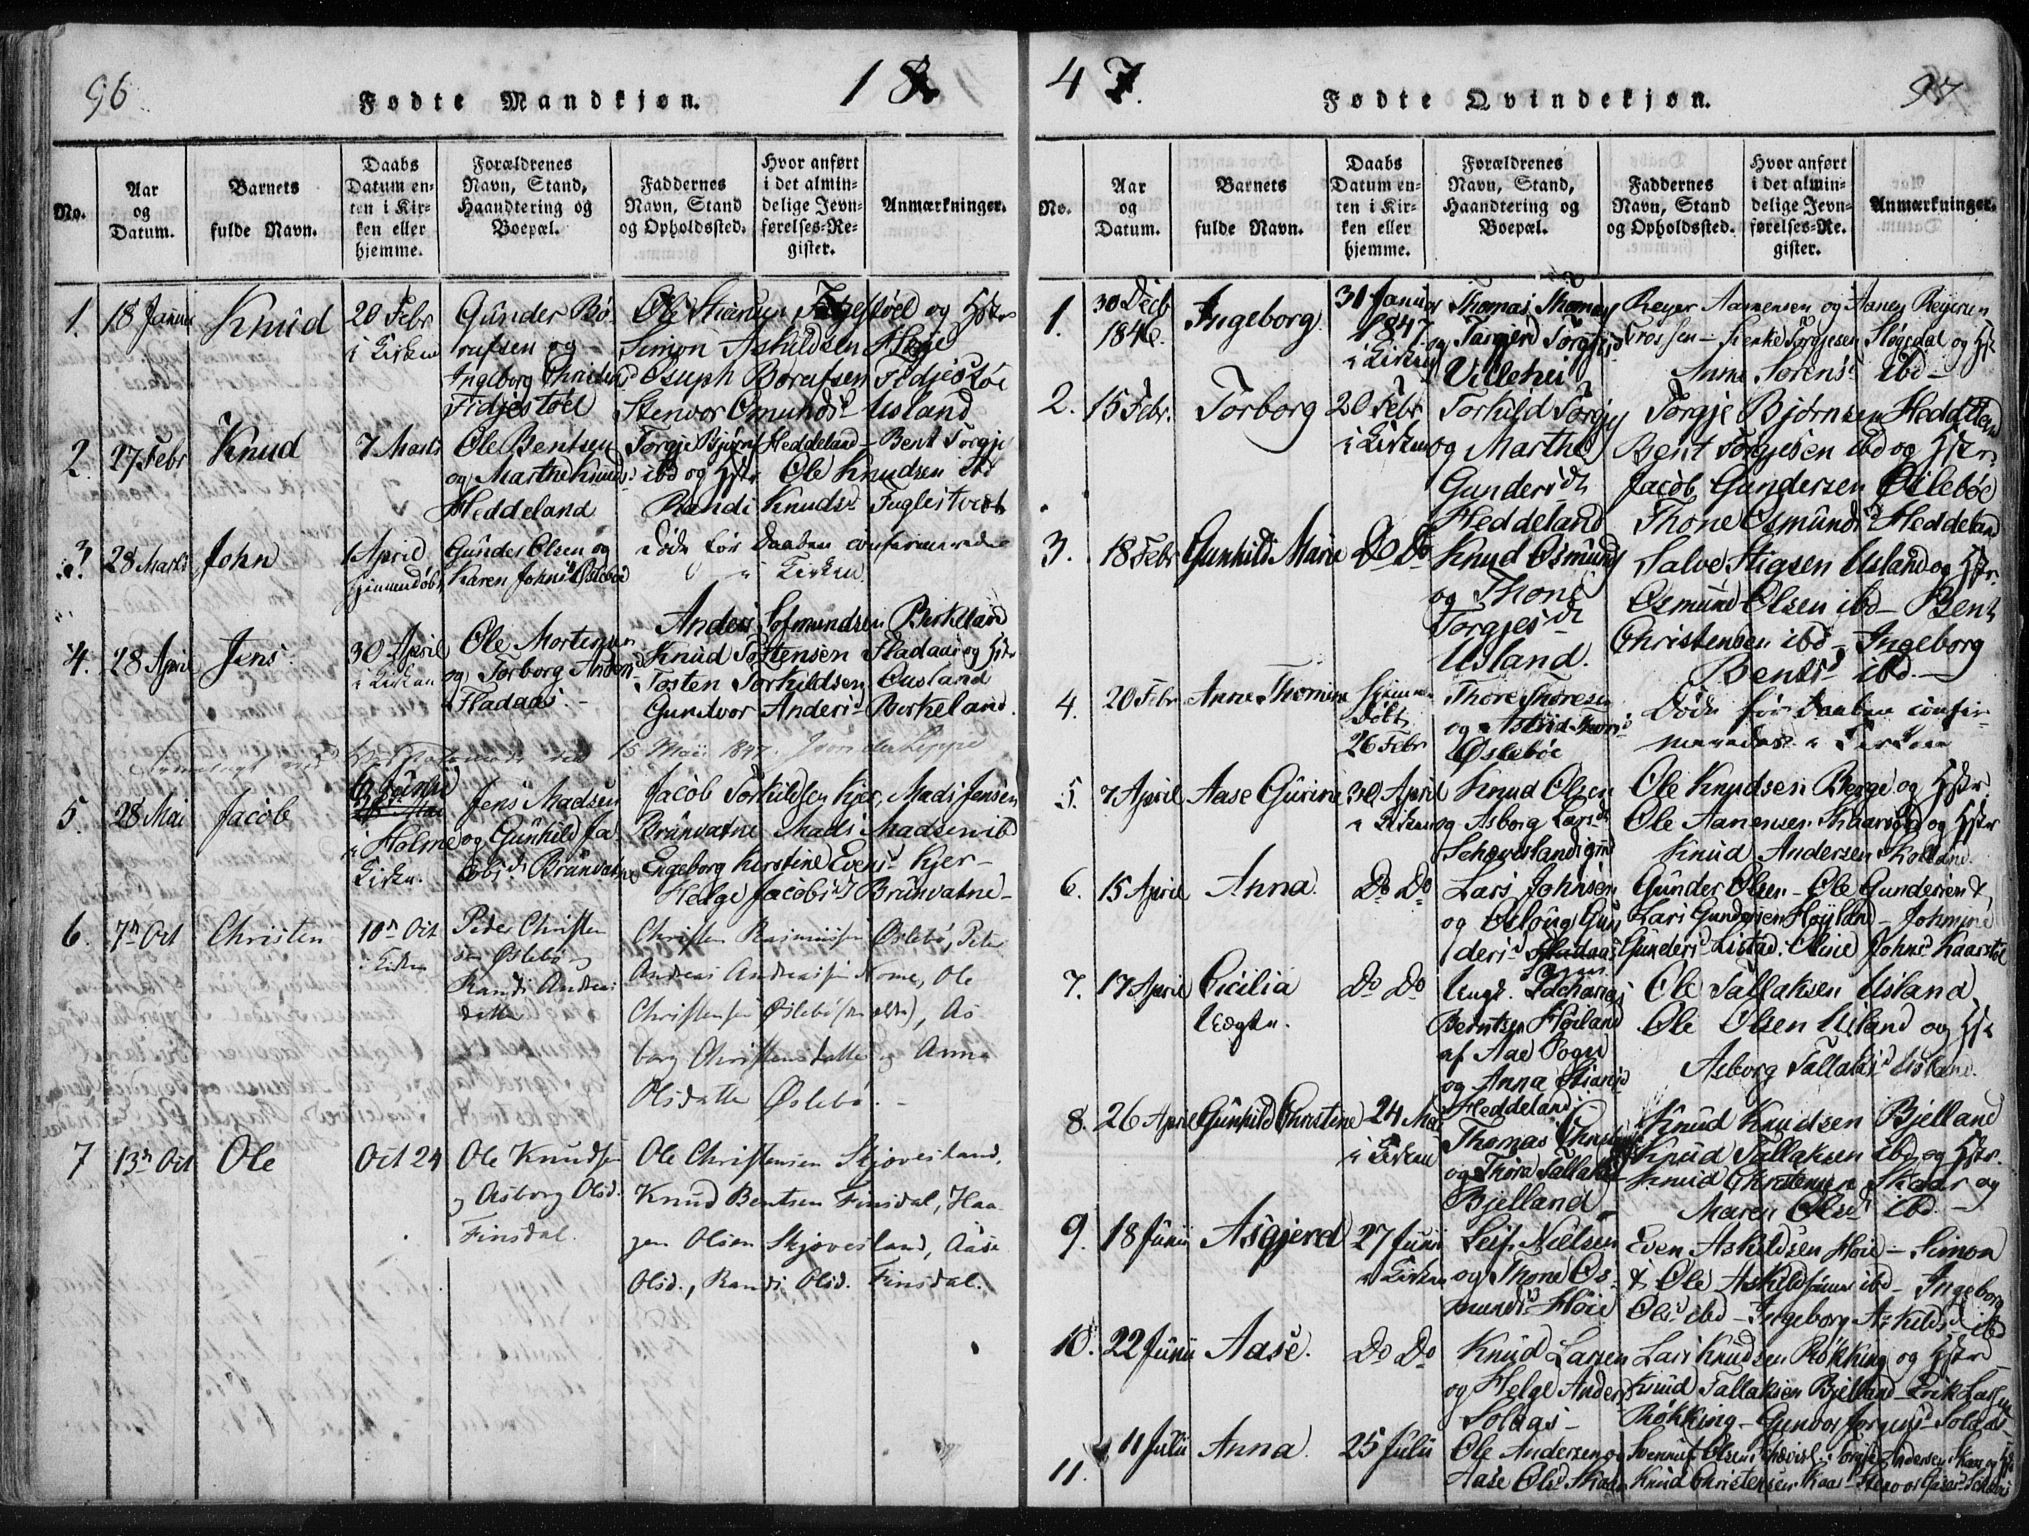 96
Fødte Mandkjøn.
18
No.
Aar
og
Datum.
Barnets
fulde Navn.
Daabs
Datum en-
ten i Kir-
ken eller
hjemme.
Forældrenes
Navn, Stand,
Haandtering og
Boepæl.
Faddernes
Navn, Stand
og Opholdssted.
Hvor anført
i det almin-
delige Jevn-
førelses-Re-
gister.
Anmærkninger.
1.
18 Januar
Knud
20 Febr
i Kirken
Gunder Bø-
rufsen og
Ingeborg Christensd
Fidjestøel
Ole Stiansen Fidjestøel og Hstr
Simon Askildsen Høie
Osuph Børufsen Fidjestøe
Stenvor Omundsd Usland
2
27 Febr
Knud
7 Marts
Ole Bentsen
og Marthe Knuds
Heddeland
Torgje Bjørns Heddeland - Bent Torgje
ibd og Hstr Ole Knudsen ibd
Randi Knudsd Fuglestvedt
3.
28 Marts
John
1 April
hjemmedøbt
Gunder Olsen og
Karen Johnsd Øslebøe
Døde før Daaben confirmerede
i Kirken.
4.
28 April
Jens
30 April
i Kirken
Ole Mortensen
og Torborg Andersd
Fladaas. -
Anders Sofmundsen Birkeland
Knud Tostensen Fladaas og Hstr
Tosten Torkildsen Ousland
Gundvor Andersd Birkeland.
15 Mai 1847.
5.
28 Mai
Jacob
6 Junii
i Holme
Kirke.
Jens Madsen
og Gunhild Ja-
cobsd Brunvatne
Jacob Torkildsen Kjer, Mads Jensen
Brunvatne Mads Madsen ibd
Engeborg Kerstine Evensd Kjer -
Helge Jacobsd Brunvatne -
6.
7n Oct
Christen
10n Oct
i Kirken
Peder Christen
sen Øslebø og
Randi Andreas
datter
Christen Rasmussen Øslebø, Peter
Andreas Andreassen Home, Ole
Christensen Øslebø, As
borg Christensdatter og Anna
Olsdatter Øslebø. -
7
13n Oct
Ole
Oct 24
Ole Knudsen
og Asborg Olsd.
Finsdal.
Ole Christensen Skjøvesland,
Knud Bentsen Finsdal, Haa
gen Olsen Skjøvesland, Aase
Olsd., Randi Olsd. Finsdal.
47.
Fødte Qvindekjøn.
97
No.
Aar
og
Datum.
Barnets
fulde Navn.
Daabs
Datum en-
ten i Kir-
ken eller
hjemme.
Forældrenes
Navn, Stand,
Haandtering og
Boepæl.
Faddernes
Navn, Stand
og Opholdssted.
Hvor anført
i det almin-
delige Jevn-
førelses-Re-
gister.
Anmærkninger.
1.
30 Decb
1846.
Ingeborg
31 Januar
1847
i Kirken
Thomas Thomas
og Targerd Torgjusd
Villehei
Reyer Aamensen og Aaney Reyersen
Trossen - Kerke Torgjesen Høgedal og Hstr
Anne Sørensd ibd -
2.
15 Febr.
Torborg
20 Febr
i Kirken
Torkild Torgjes
og Marthe
Gundersdr
Heddeland
Torgje Bjørnsen Heddeland
Bent Torgjesen ibd og Hstr.
Jacob Gundersen Øilebøe
Thone Osmundsd Heddeland
3.
18 Febr
Gunhild Marie
Do Do
Knud Osmunds
og Thone
Torgjesdr
Usland.
Salve Stigsen Usland og Hstr.
Osmund Olsen ibd - Bent
Christensen ibd - Ingeborg
Bentsd ibd. -
4.
20 Febr
Anne Thomine
Hjemme
døbt
26 Febr
Thore Thoresen
og Astrid Thorsd
Øslebøe
Døde før Daaben confir-
meredes i Kirken
5.
7 April
Aase Gurine
30 April
i Kirken
Knud Olsen
og Asborg Larsdr
Schøveslandsgrd
Ole Knudsen Berge og Hstr.
Ole Aanensen Kaarstøl og Hstr
Knud Andersen Kolland.
6.
15 April
Anna.
Do Do
Lars Johnsen
og Oeloug Gun
dersd Fladaas
Gunder Olsen - Ole Gundersen &
Lars Gundersen Høyland - Johnine
Gundersd Listad. Oline Johnsd Kaarstøl
7.
17 April
Cicilia
Uægte.
Do Do
Ungk. Zacharias
Berntsen Høiland
af Aae Sogn
og Anna Stiansd
Heddeland
Ole Tallaksen Usland
Ole Olsen Usland og Hst
Asborg Tallaksd Usland.
8.
26 April
Gunhild Christine
24 Mai
i Kirken
Thomas Christens
og Thora Tallaksd
Bjelland -
Knud Knudsen Bjelland
Knud Tallaksen ibd og Hstr.
Knud Christensen Skaar og
Maren Olsd ibd -
9.
18 Junii
Asgjerd
27 Junii
i Kirken
Leif Nielsen
og Thone Os-
mundsd Høie
Even Askildsen Høie - Simon
& Ole Askildsønner ibd - Ingeborg
Olsd ibd - Ingeborg Askildsd ibd
10.
22 Junii
Aase.
Do Do
Knud Larsen
og Helge Andersd
Solaas -
Lars Knudsen Røkking og Hstr
Knud Tallaksen Bjelland - Erik Larsen
Røkking - Gunvor Jørgensd Solaas -
11.
11 Julii
Anna.
25 Julii
Ole Andersen og
Aase Olsd Skaar
Svennuf Olsen Torgje Andersen Kaas og Hstr
Knud Christensen Kaas -